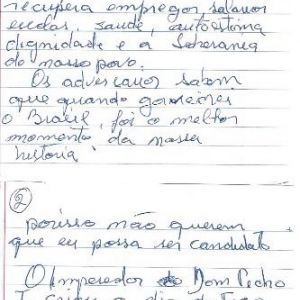 recupera empregos, salários
escolas, saúde, autoestima
dignidade e a Soberania
do nosso povo.
Os adversarios sabem
que quando governei
o Brasil, foi o melhor
momento da nossa
história
2
porisso não querem
que eu possa ser candidato
O Imperador Dom Pedro
I criou o dia